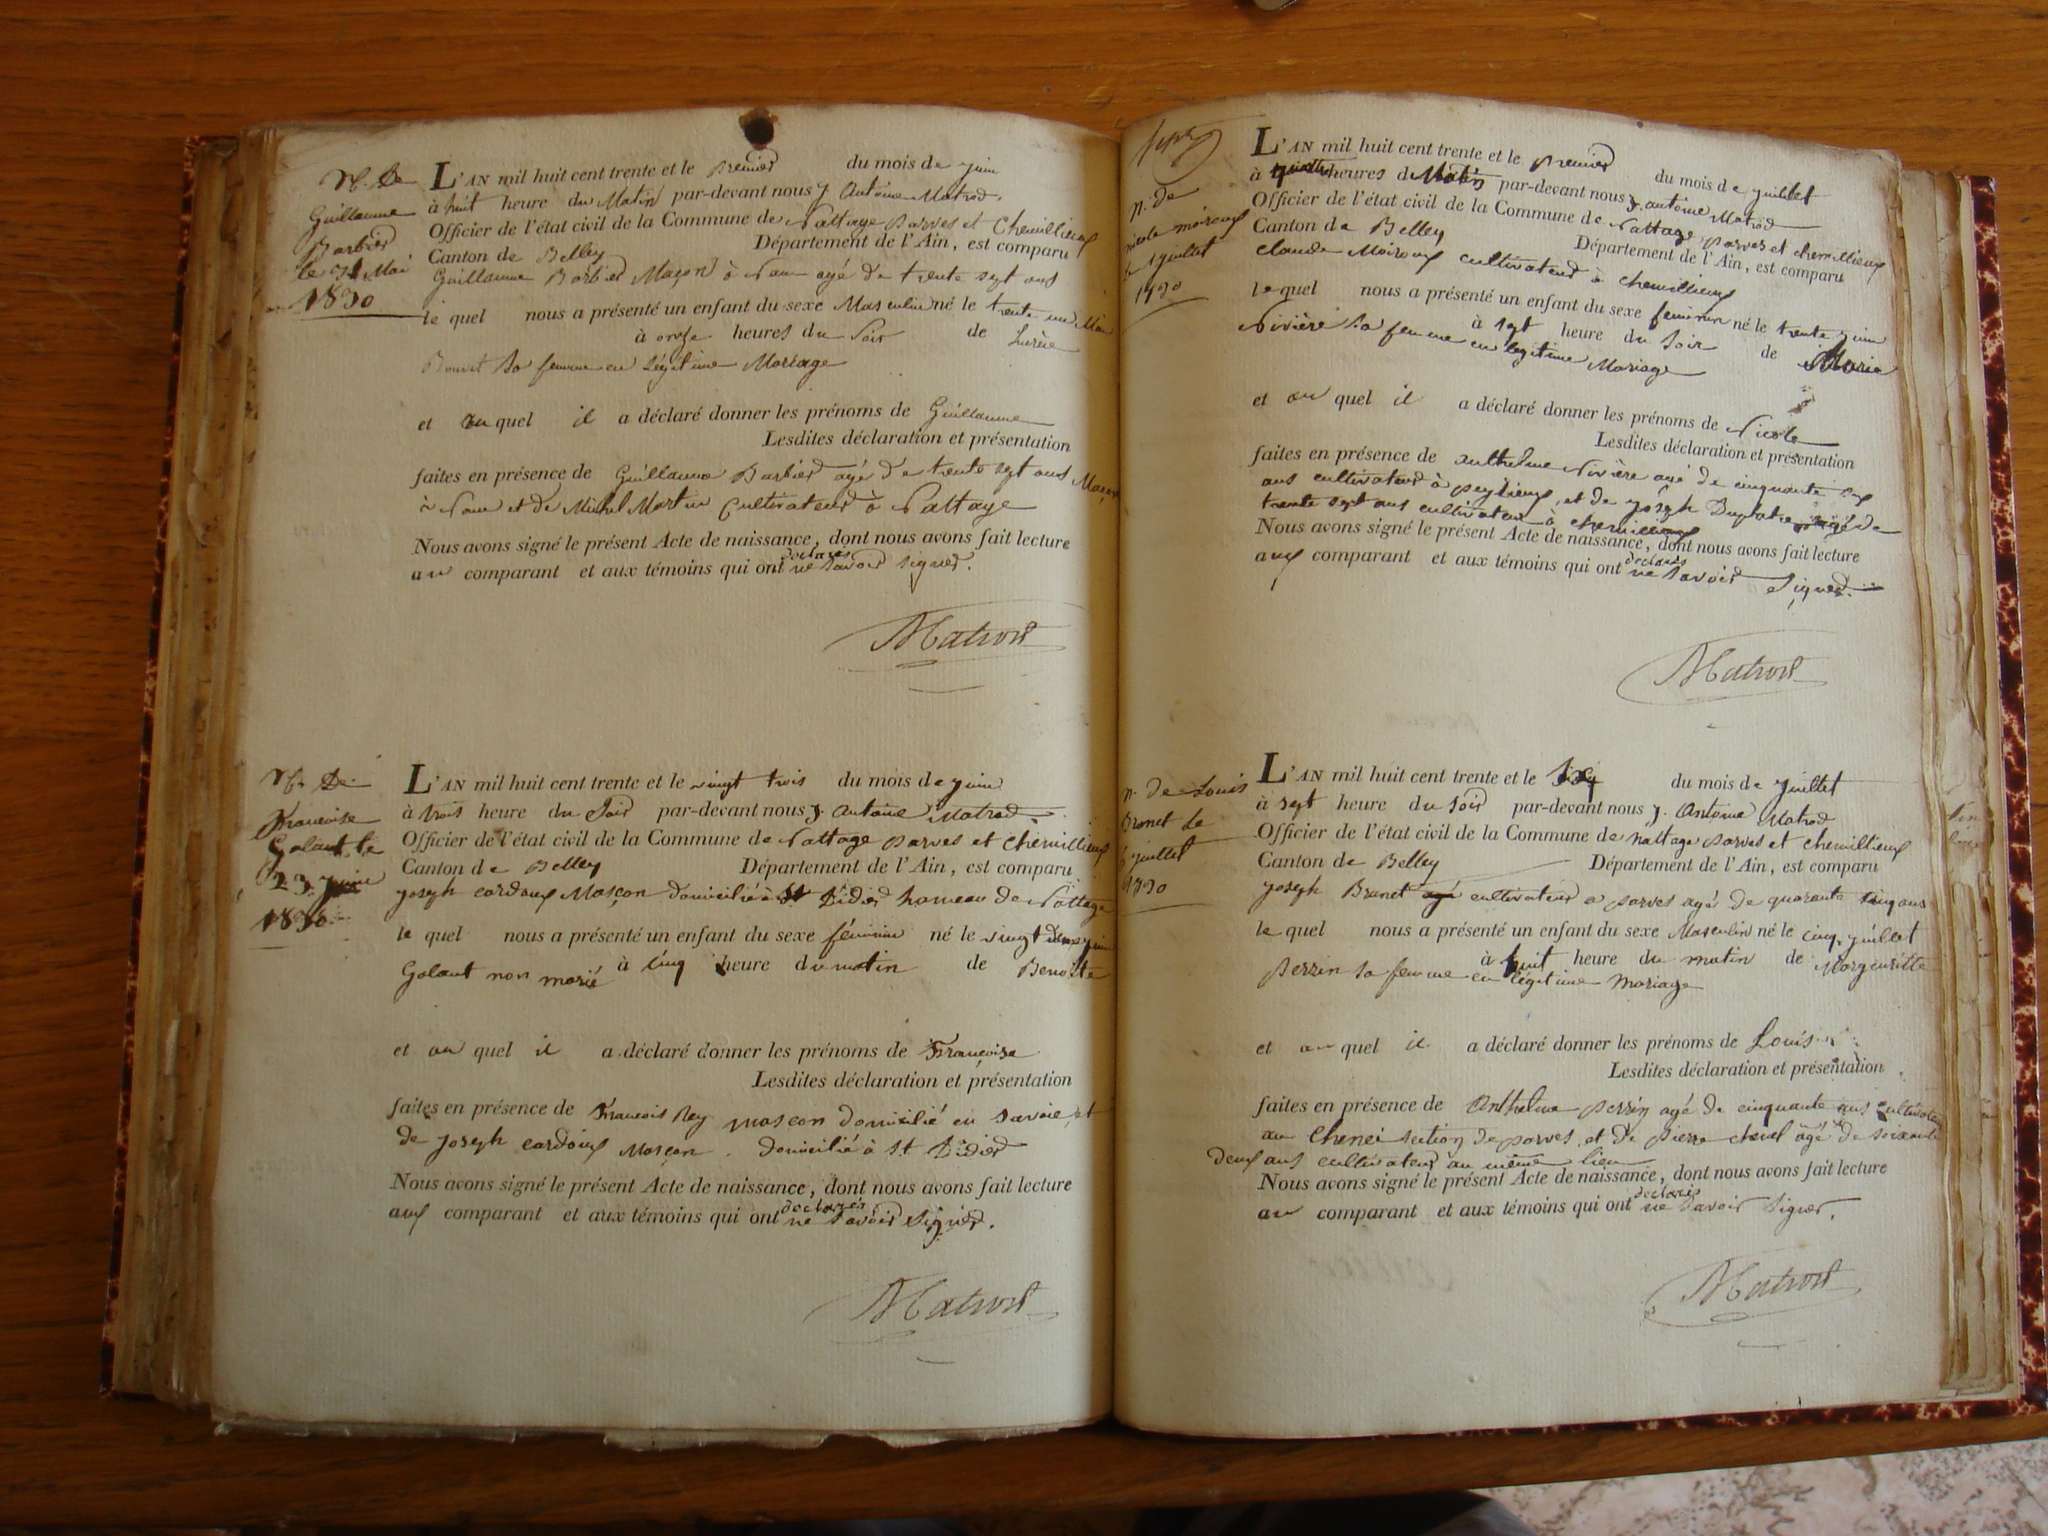 N. De
Guillaume
Barbier
le 31 Mai
1830
L'AN mil huit cent trente et le premier du mois de juin
à huit heure du Matin par-devant nous J. Antoine Matrod.
Officier de l'état civil de la Commune de Nattage Parves et Chemillieux
Canton de Belley Département de l'Ain, est comparu
Guillaume Barbier Maçon à Nan agé de trente sept ans
le quel nous a présenté un enfant du sexe Masculin né le trente un Mai
à onze heures du Soir de Lucrèce
Bouvet Sa femme en Légitime Mariage
et au quel il a déclaré donner les prénoms de Guillaume
Lesdites déclaration et présentation
faites en présence de Guillaume Barbier agé de trente sept ans Maçon
à Nan et de Michel Martin Cultivateur à Nattage
Nous avons signé le présent Acte de naissance, dont nous avons fait lecture
au comparant et aux témoins qui ont déclarés ne Savoir Signer.
Matrod
N. De
Francoise
Galant le
23 juin
1830
L'AN mil huit cent trente et le vingt trois du mois de juin
à trois heure du Soir par-devant nous J. Antoine Matrod.
Officier de l'état civil de la Commune de Nattage Parves et Chemillieux
Canton de Belley Département de l'Ain, est comparu
joseph cardoux Maçon domicilié à St Didier hameau de Nattage
le quel nous a présenté un enfant du sexe féminin né le vingt deux juin
à cinq heure du matin de Benoite
Galant non marié
et au quel il a déclaré donner les prénoms de Françoise
Lesdites déclaration et présentation
faites en présence de François Rey mascon domicilié en Savoie, et
de joseph cardoux Mascon. domicilié à St Didier
Nous avons signé le présent Acte de naissance, dont nous avons fait lecture
aux comparant et aux témoins qui ont déclarés ne Savoir Signer.
Matrod
Sept
n. de
nicole moiroux
le 1 juillet
1830
L'AN mil huit cent trente et le premier du mois de juillet
à quatre heures du Matin par-devant nous J. antoine Matrod
Officier de l'état civil de la Commune de Nattage, parves et chemillieux
Canton de Belley Département de l'Ain, est comparu
claude Moiroux cultivateur à chemillieux
le quel nous a présenté un enfant du sexe feminin né le trente juin
à sept heure du Soir de Marie
Nivière Sa femme en legitime Mariage
et au quel il a déclaré donner les prénoms de Nicole
Lesdites déclaration et présentation
faites en présence de anthelme Nivière agé de cinquante six
ans cultivateur à peyzieux, et de joseph agé de
trente sept ans cultivateur à chemillieux
Nous avons signé le présent Acte de naissance, dont nous avons fait lecture
aux comparant et aux témoins qui ont déclarés ne Savoir Signer.
Matrod
n. de Louis
Brunet le
5 juillet
1830
L'AN mil huit cent trente et le Six du mois de juillet
à sept heure du Soir par-devant nous J. Antoine Matrod
Officier de l'état civil de la Commune de nattage parves et chemillieux
Canton de Belley Département de l'Ain, est comparu
joseph Brunet agé cultivateur a parves agé de quarante cinq ans
le quel nous a présenté un enfant du sexe Masculin né le cinq juillet
à huit heure du matin de Margeuritte
Perrin Sa femme en légitime Mariage
et au quel il a déclaré donner les prénoms de Louis
Lesdites déclaration et présentation
faites en présence de Anthelme perrin agé de cinquante ans cultivateur
au Chenei Section de parves, et de pierre agé de soixante
deux ans cultivateur au même lieu
Nous avons signé le présent Acte de naissance, dont nous avons fait lecture
au comparant et aux témoins qui ont déclarés ne Savoir Signer.
Matrod